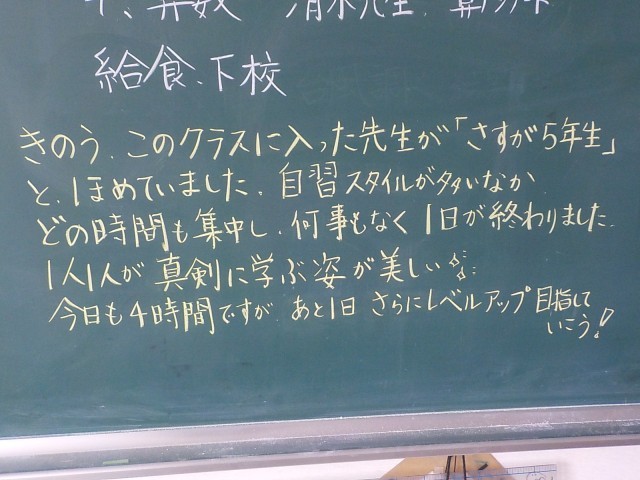 4、算数 清水先生、算プリント
給食、下校
きのう、このクラスに入った先生が「さすが5年生」
と、ほめていました。自習スタイルが多いなか
どの時間も集中し、何事もなく1日が終わりました。
1人1人が真剣に学ぶ姿が美しい
今日も4時間ですが、あと1日 さらにレベルアップ目指して
いこう!